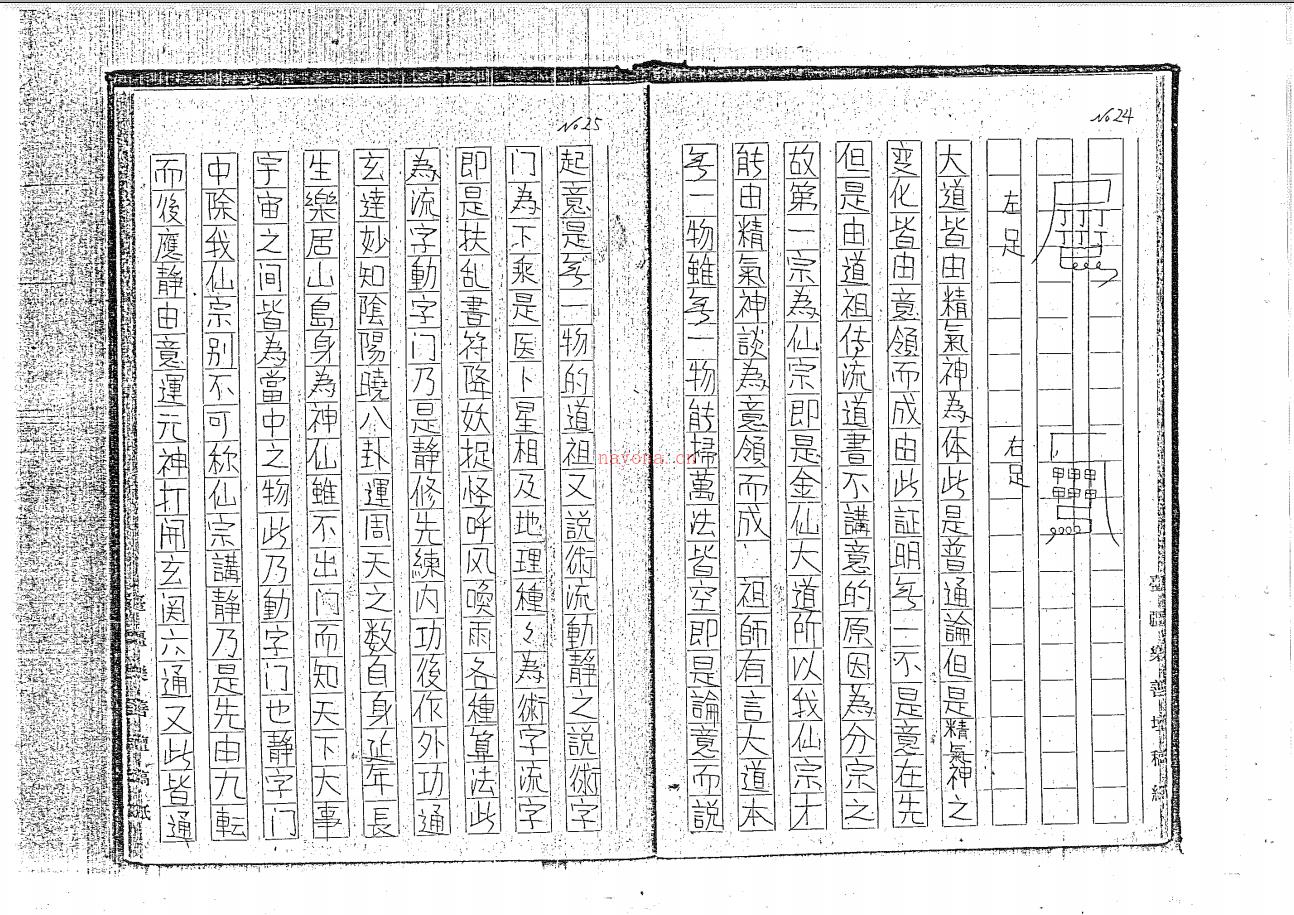 No 24
左足
右足
大道皆由精氣神為体此是普通論但是精氣神之
变化皆由意領而成由此証明無一不是意在先
但是由道祖传流道書不講意的原因為分宗之
故第一宗為仙宗即是金仙大道所以我仙宗才
能由精氣神談為意領而成、祖師有言大道本
無一物雖無一物能掃萬法皆空即是論意而説
臺疆樂善壇稿紙
No 25
起意是無一物的道祖又説術流動靜之説術字
门為下乘是医卜星相及地理種々為術字流字
即是扶乩書符降妖捉怪呼风喚雨各種算法此
為流字動字门乃是靜修先練内功後作外功通
玄達妙知陰陽曉八卦運周天之数自身延年長
生樂居山島身為神仙雖不出门而知天下大事
宇宙之间皆為當中之物此乃動字门也靜字门
中除我仙宗别不可称仙宗講靜乃是先由九転
而後應靜由意運元神打開玄関六通又此皆通
臺疆樂善壇稿紙
nayona.cn